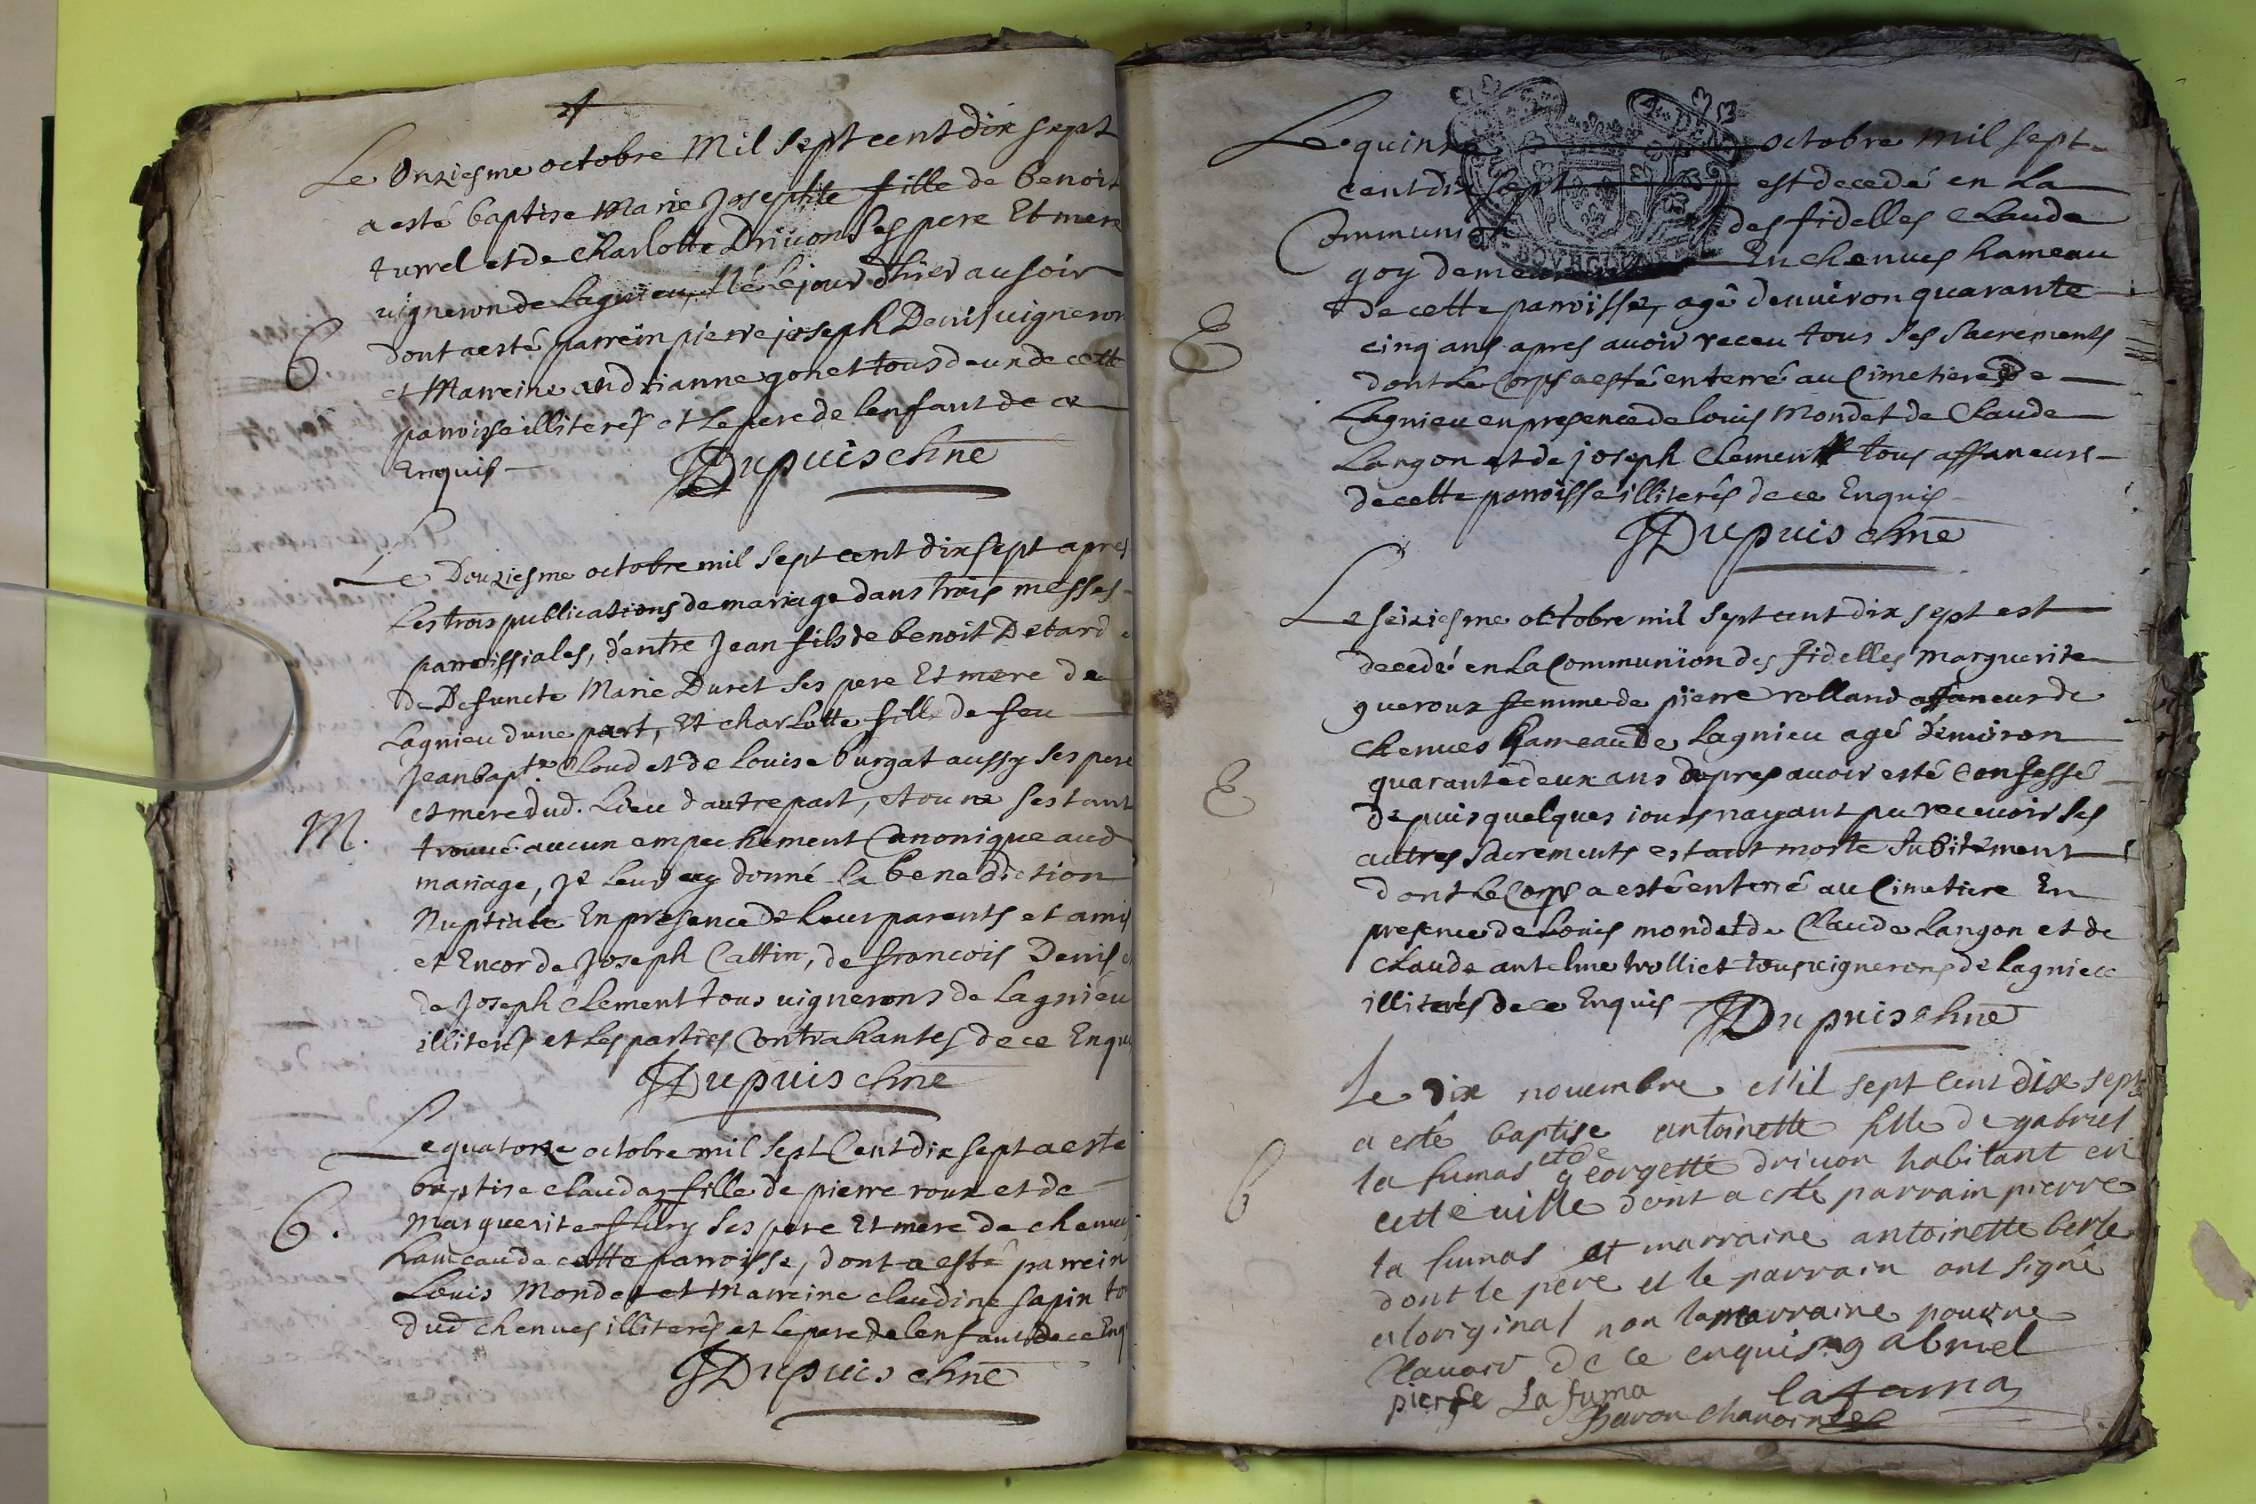 Le Onziesme octobre Mil sept cent dix sept
a esté baptise Marie Josephte fille de benoit
turrel et de Charlotte Driuon ses pere Et mere
uigneron de Lagnieu, Né le jour d'hier au soir
B dont a esté parrein pierre joseph Denis uigneron
et Marreine andrianne gonet tous deux de cette
parroisse illiterés et le pere de lenfant de ce
Enquis
JDupuis chne
Le Douziesme octobre mil sept cent dix sept apres
les trois publications de mariage dans trois messes
parroissiales, d'entre Jean fils de benoit Debard
de Defuncte Marie Duret ses pere Et mere de
Lagnieu dune part, Et charlotte fille de feu
Jean bapte Cloud et de Louise burgat aussy ses pere
et mere dud. Lieu d'autre part, et ou ne sestant
M. trouué aucun empechement Canonique aud
mariage, je leur ay donné la benediction
Nuptiale En presence de leurs parents et amis
et Encor de Joseph Cattin, de francois Denis
de Joseph Clement tous uignerons de Lagnieu
illiterés et les parties Contrahantes de ce Enquis
JDupuis chne
Le quatorze octobre mil sept Cent dix sept a esté
baptise clauda fille de pierre roux et de
B. Marguerite flury ses pere Et mere de chenues
hameau de cette parroisse, dont a esté parrein
Louis Mondet et Marreine claudine sapin
dud chenues illiterés et le pere de lenfant de ce Enq
JDupuis chne
Le quinze octobre mil sept
cent dix sept est decedé en La
Communion des fidelles Claude
goy En chenues hameau
E de cette parroisse, agé denuiron quarante
cinq ans apres auoir receu tous ses sacrements
dont Le Corps a esté enterré au Cimetiere de
Lagnieu en presence de louis Mondet de Claude
Langon et de joseph Clement tous affaneurs
de cette parroisse illiterés de ce Enquis
JDupuis chne
Le seiziesme octobre mil sept cent dix sept est
decedé en La Communion des fidelles Marguerite
queroux femme de pierre rolland affaneur de
chenues hameau de Lagnieu agé denuiron
E quarante deux ans apres auoir esté Confessé
depuis quelques jours nayant pu receuoir les
autres sacrements estant morte subitement
dont le Corps a esté enterré au Cimetiere En
presence de Louis mondet de Claude Langon et de
Claude antelme trolliet tous uignerons de Lagnieu
illiterés de ce Enquis JDupuis chne
Le dix nouembre Mil sept Cent dix sept
a esté baptise antoinette fille de gabriel
la fumas et de georgette driuon habitant en
B cette uille dont a esté parrain pierre
la fumas et marraine antoinette berle
dont le pere et le parrain ont signé
a loriginal non la marraine pour ne
scauoir de ce enquis gabriel
pierre La fuma lafuma
Chanoine